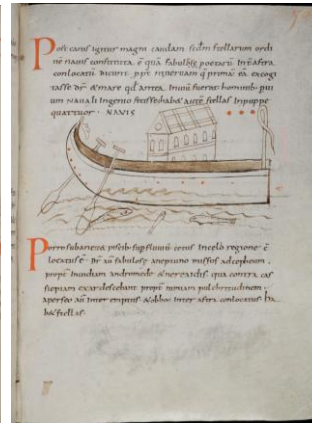 Post canis igitur magni caudam scdm stellarum ordi
ne nauis constituta. ē quā fabulosę poetarū Inter astra
conlocatā dicunt. ppt mineruam q prima eā excogi
tasse dr & mare qd antea Inuiū fuerat hominib; pui
um Nauali Ingenio fecisse habā& autē stellas In puppe
quattuor · NAVIS
Porro subaneta piscib; sup fluuiū cetus In celo regione ē
locatus ē dr aū fabulose aneptuno missus ad cepheum
propt Inuidiam andromede & nereidis qua contra cas
siepiam exardescebant propt nimiam pulchritudinem
aperseo aū Interemptus & ob hoc Inter astra conlocatus ha
b& stellas